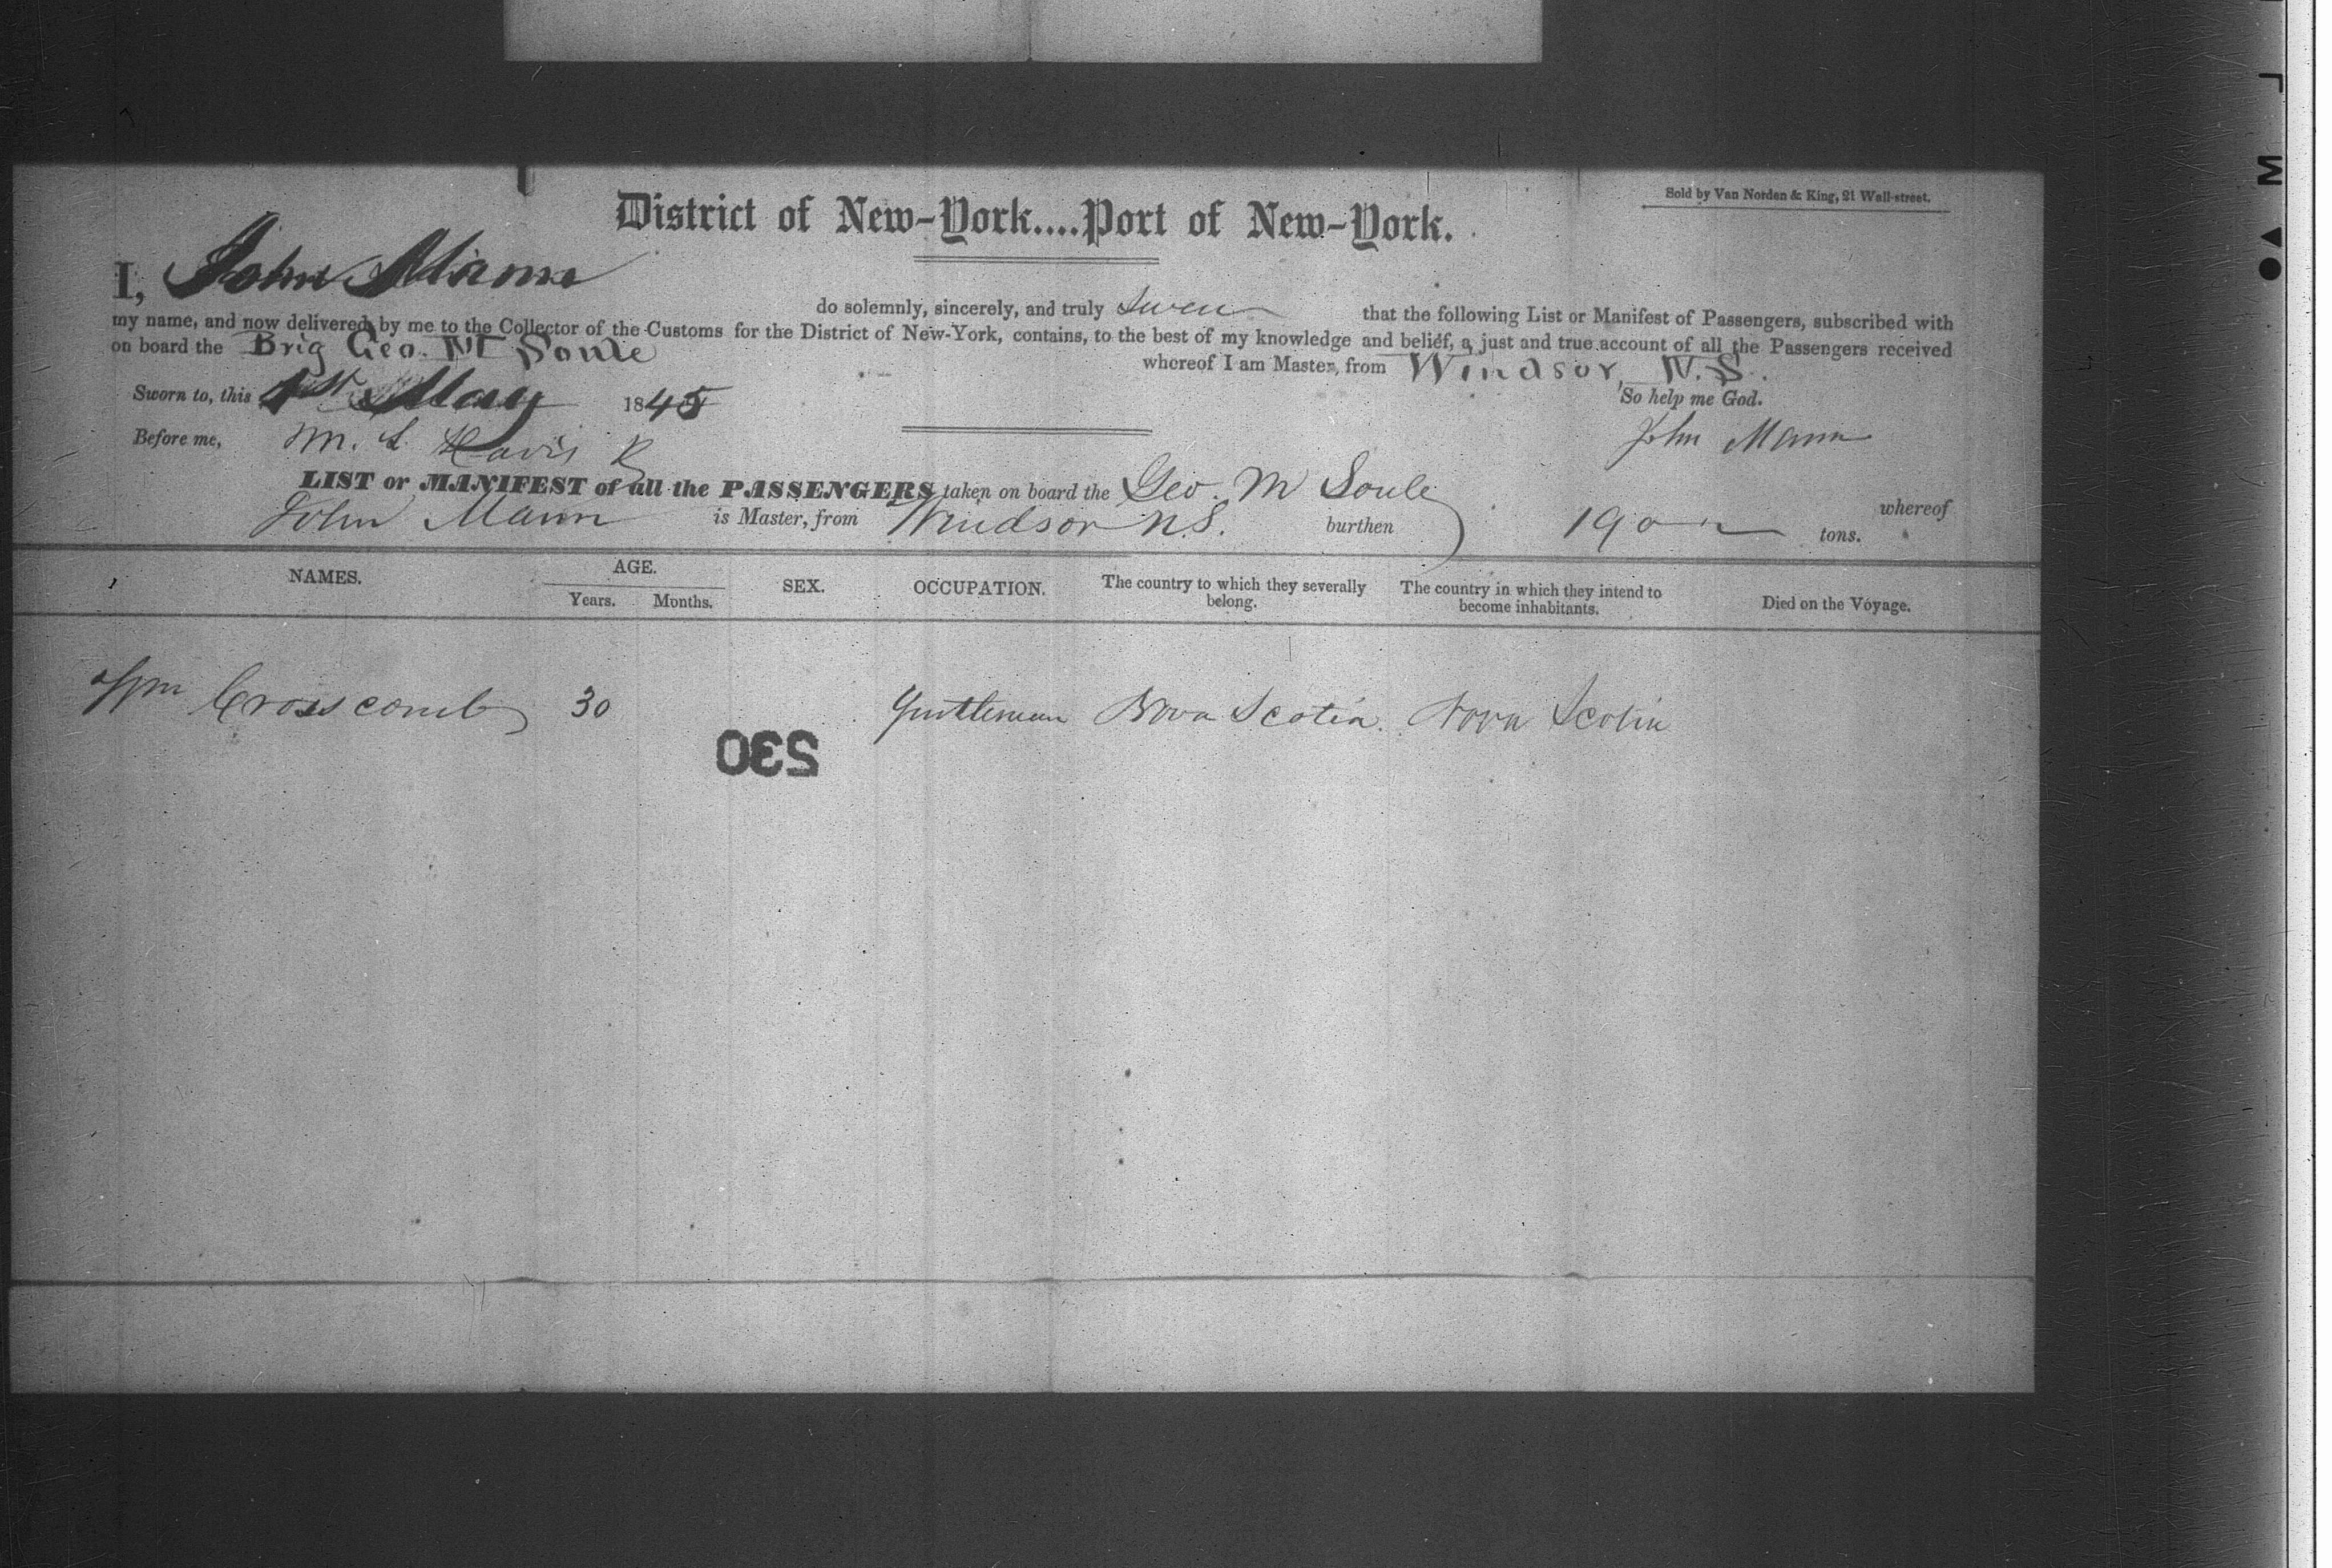 Sold by Van Norden & King, 21 Wall-street.
District of New-York....Port of New-York.
I, John Mann do solemnly, sincerely, and truly Swear that the following List or Manifest of Passengers, subscribed with
my name, and now delivered by me to the Collector of the Customs for the District of New-York, contains, to the best of my knowledge and belief, a just and true account of all the Passengers received
on board the Brig Geo. M Soule whereof I am Master, from Windsor, N.S.
Sworn to, this 1st May 1845 So help me God.
Before me, M. L. Davis John Mann
LIST or MANIFEST of all the PASSENGERS taken on board the Geo. M Soule whereof
John Mann is Master, from Windsor N.S. burthen 190 tons.
NAMES. AGE. Years. Months. SEX. OCCUPATION. The country to which they severally belong. The country in which they intend to become inhabitants. Died on the Voyage.
Wm Crosscomb 30 Gentleman Nova Scotia. Nova Scotia
230